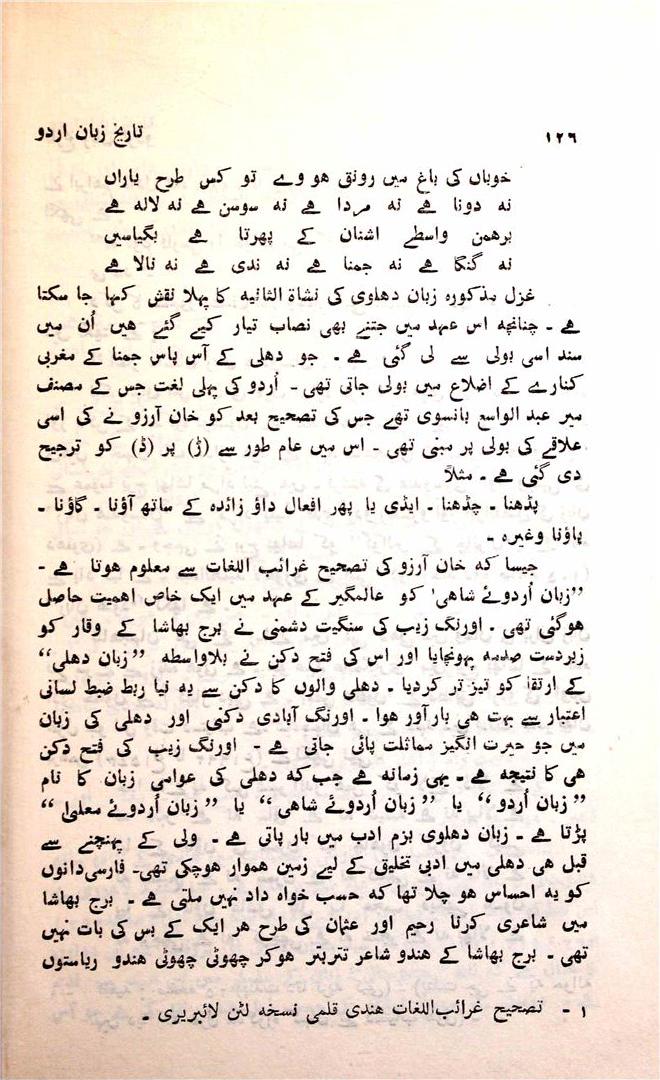 ۱۲٦ تاریخ زبان اردو
خوباں کی باغ میں رونق هووے تو کس طرح یاراں
نہ دونا ھے نہ مردا ھے نہ سوسن ھے نہ لالہ ھے
برھمن واسطے اشنان کے پھرتا ھے بگیاسیں
نہ گنگا ھے نہ جمنا ھے نہ ندی ھے نہ نالا ھے
غزل مذکورہ زبان دھلوی کی نشاۃ الثانیہ کا پہلا نقش کہا جا سکتا
ھے ۔ چنانچہ اس عہد میں جتنے بھی نصاب تیار کیے گئے ھیں اُن میں
سند اسی بولی سے لی گئی ھے ۔ جو دھلی کے آس پاس جمنا کے مغربی
کنارے کے اضلاع میں بولی جاتی تھی ۔ اُردو کی پہلی لغت جس کے مصنف
میر عبد الواسع ہانسوی تھے جس کی تصحیح بعد کو خان آرزو نے کی اسی
علاقے کی بولی پر مبنی تھی ۔ اس میں عام طور سے (ڑ) پر (ڈ) کو ترجیح
دی گئی ھے ۔ مثلاً
پڈھنا ۔ چڈھنا ۔ ایڈی یا پھر افعال داؤ زائدہ کے ساتھ آؤنا ۔ گاؤنا ۔
پاؤنا وغیرہ ۔
جیسا کہ خان آرزو کی تصحیح غرائب اللغات سے معلوم ھوتا ھے ۔
”زبان اُردوئے شاھی‘ کو عالمگیر کے عہد میں ایک خاص اھمیت حاصل
ھوگئی تھی ۔ اورنگ زیب کی سنگیت دشمنی نے برج بھاشا کے وقار کو
زبردست صدمہ پہونچایا اور اس کی فتح دکن نے بلاواسطہ ”زبان دھلی“
کے ارتقا کو تیز تر کردیا ۔ دھلی والوں کا دکن سے یہ نیا ربط ضبط لسانی
اعتبار سے بہت ھی بارآور ھوا ۔ اورنگ آبادی دکنی اور دھلی کی زبان
میں جو حیرت انگیز مماثلت پائی جاتی ھے ۔ اورنگ زیب کی فتح دکن
ھی کا نتیجہ ھے ۔ یہی زمانہ ھے جب کہ دھلی کی عوامی زبان کا نام
”زبان اُردو“ یا ”زبان اُردوئے شاھی“ یا ”زبان اُردوئے معلیٰ“
پڑتا ھے ۔ زبان دھلوی بزم ادب میں بار پاتی ھے ۔ ولی کے پہنچنے سے
قبل ھی دھلی میں ادبی تخلیق کے لیے زمین ھموار ھوچکی تھی ۔ فارسی‌دانوں
کو یہ احساس ھو چلا تھا کہ حسب خواہ داد نہیں ملتی ھے ۔ برج بھاشا
میں شاعری کرنا رحیم اور عثمان کی طرح ھر ایک کے بس کی بات نہیں
تھی ۔ برج بھاشا کے ھندو شاعر تتربتر ھوکر چھوٹی چھوٹی ھندو ریاستوں
۱ ۔ تصحیح غرائب‌اللغات ھندی قلمی نسخہ لٹن لائبریری ۔